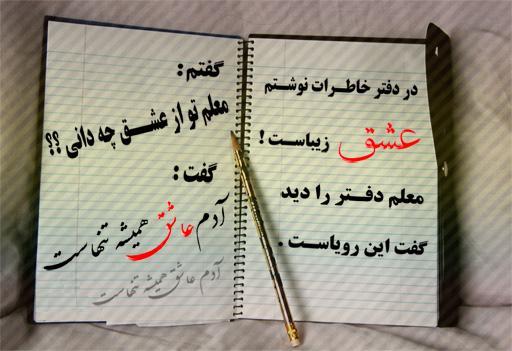 در دفتر خاطرات نوشتم
عشق زیباست !
معلم دفتر را دید
گفت این رویاست .
گفتم :
معلم تو از عشق چه دانی ؟؟
گفت :
آدم عاشق همیشه تنهاست
آدم عاشق همیشه تنهاست